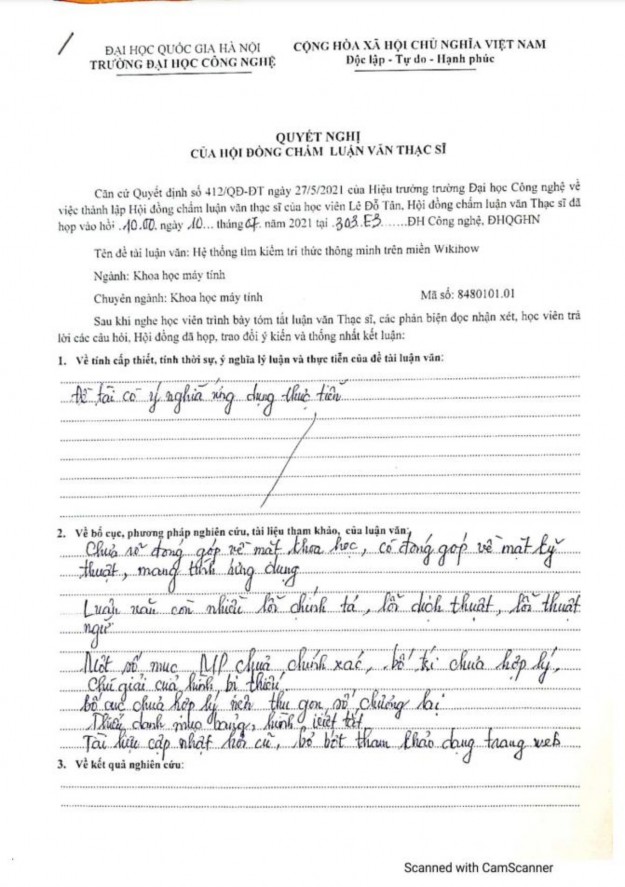 ĐẠI HỌC QUỐC GIA HÀ NỘI
TRƯỜNG ĐẠI HỌC CÔNG NGHỆ
CỘNG HÒA XÃ HỘI CHỦ NGHĨA VIỆT NAM
Độc lập - Tự do - Hạnh phúc
QUYẾT NGHỊ
CỦA HỘI ĐỒNG CHẤM LUẬN VĂN THẠC SĨ
Căn cứ Quyết định số 412/QĐ-ĐT ngày 27/5/2021 của Hiệu trưởng trường Đại học Công nghệ về
việc thành lập Hội đồng chấm luận văn thạc sĩ của học viên Lê Đỗ Tân, Hội đồng chấm luận văn Thạc sĩ đã
họp vào hồi 10.00, ngày 10 tháng 07 năm 2021 tại 303.E3 ĐH Công nghệ, ĐHQGHN
Tên đề tài luận văn: Hệ thống tìm kiếm tri thức thông minh trên miền Wikihow
Ngành: Khoa học máy tính
Chuyên ngành: Khoa học máy tính Mã số: 8480101.01
Sau khi nghe học viên trình bày tóm tắt luận văn Thạc sĩ, các phản biện đọc nhận xét, học viên trả
lời các câu hỏi, Hội đồng đã họp, trao đổi ý kiến và thống nhất kết luận:
1. Về tính cấp thiết, tính thời sự, ý nghĩa lý luận và thực tiễn của đề tài luận văn:
Đề tài có ý nghĩa ứng dụng thực tiễn
2. Về bố cục, phương pháp nghiên cứu, tài liệu tham khảo, của luận văn:
Chưa rõ đóng góp về mặt khoa học, có đóng góp về mặt kỹ
thuật, mang tính ứng dụng
Luận văn còn nhiều lỗi chính tả, lỗi dịch thuật, lỗi thuật
ngữ
Một số mục, chưa chính xác, bố trí chưa hợp lý,
Chú giải của hình bị thiếu
bố cục chưa hợp lý, nên thu gọn số chương lại
Thiếu danh mục bảng, hình, viết tắt
Tài liệu cập nhật hơi cũ, bỏ bớt tham khảo dạng trang web
3. Về kết quả nghiên cứu:
Scanned with CamScanner